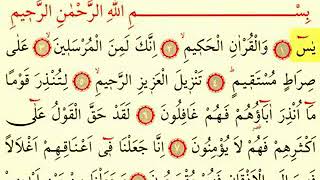 بِسْمِ اللّٰهِ الرَّحْمٰنِ الرَّحِيمِ
يٰسٓ ﴿١﴾ وَالْقُرْاٰنِ الْحَكِيمِ ﴿٢﴾ اِنَّكَ لَمِنَ الْمُرْسَلِينَ ﴿٣﴾ عَلٰى
صِرَاطٍ مُسْتَقِيمٍ ﴿٤﴾ تَنْزِيلَ الْعَزِيزِ الرَّحِيمِ ﴿٥﴾ لِتُنْذِرَ قَوْمًا
مَٓا اُنْذِرَ اٰبَٓاؤُهُمْ فَهُمْ غَافِلُونَ ﴿٦﴾ لَقَدْ حَقَّ الْقَوْلُ عَلٰٓى
اَكْثَرِهِمْ فَهُمْ لَا يُؤْمِنُونَ ﴿٧﴾ اِنَّا جَعَلْنَا فٓى اَعْنَاقِهِمْ اَغْلَالًا